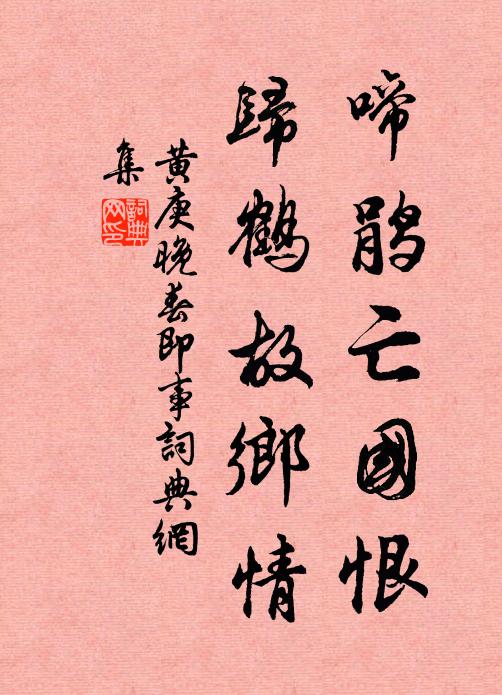 啼鹃亡國恨
歸鶴故鄉情
黄庚晚春即事詞典網
集
詞典
网印